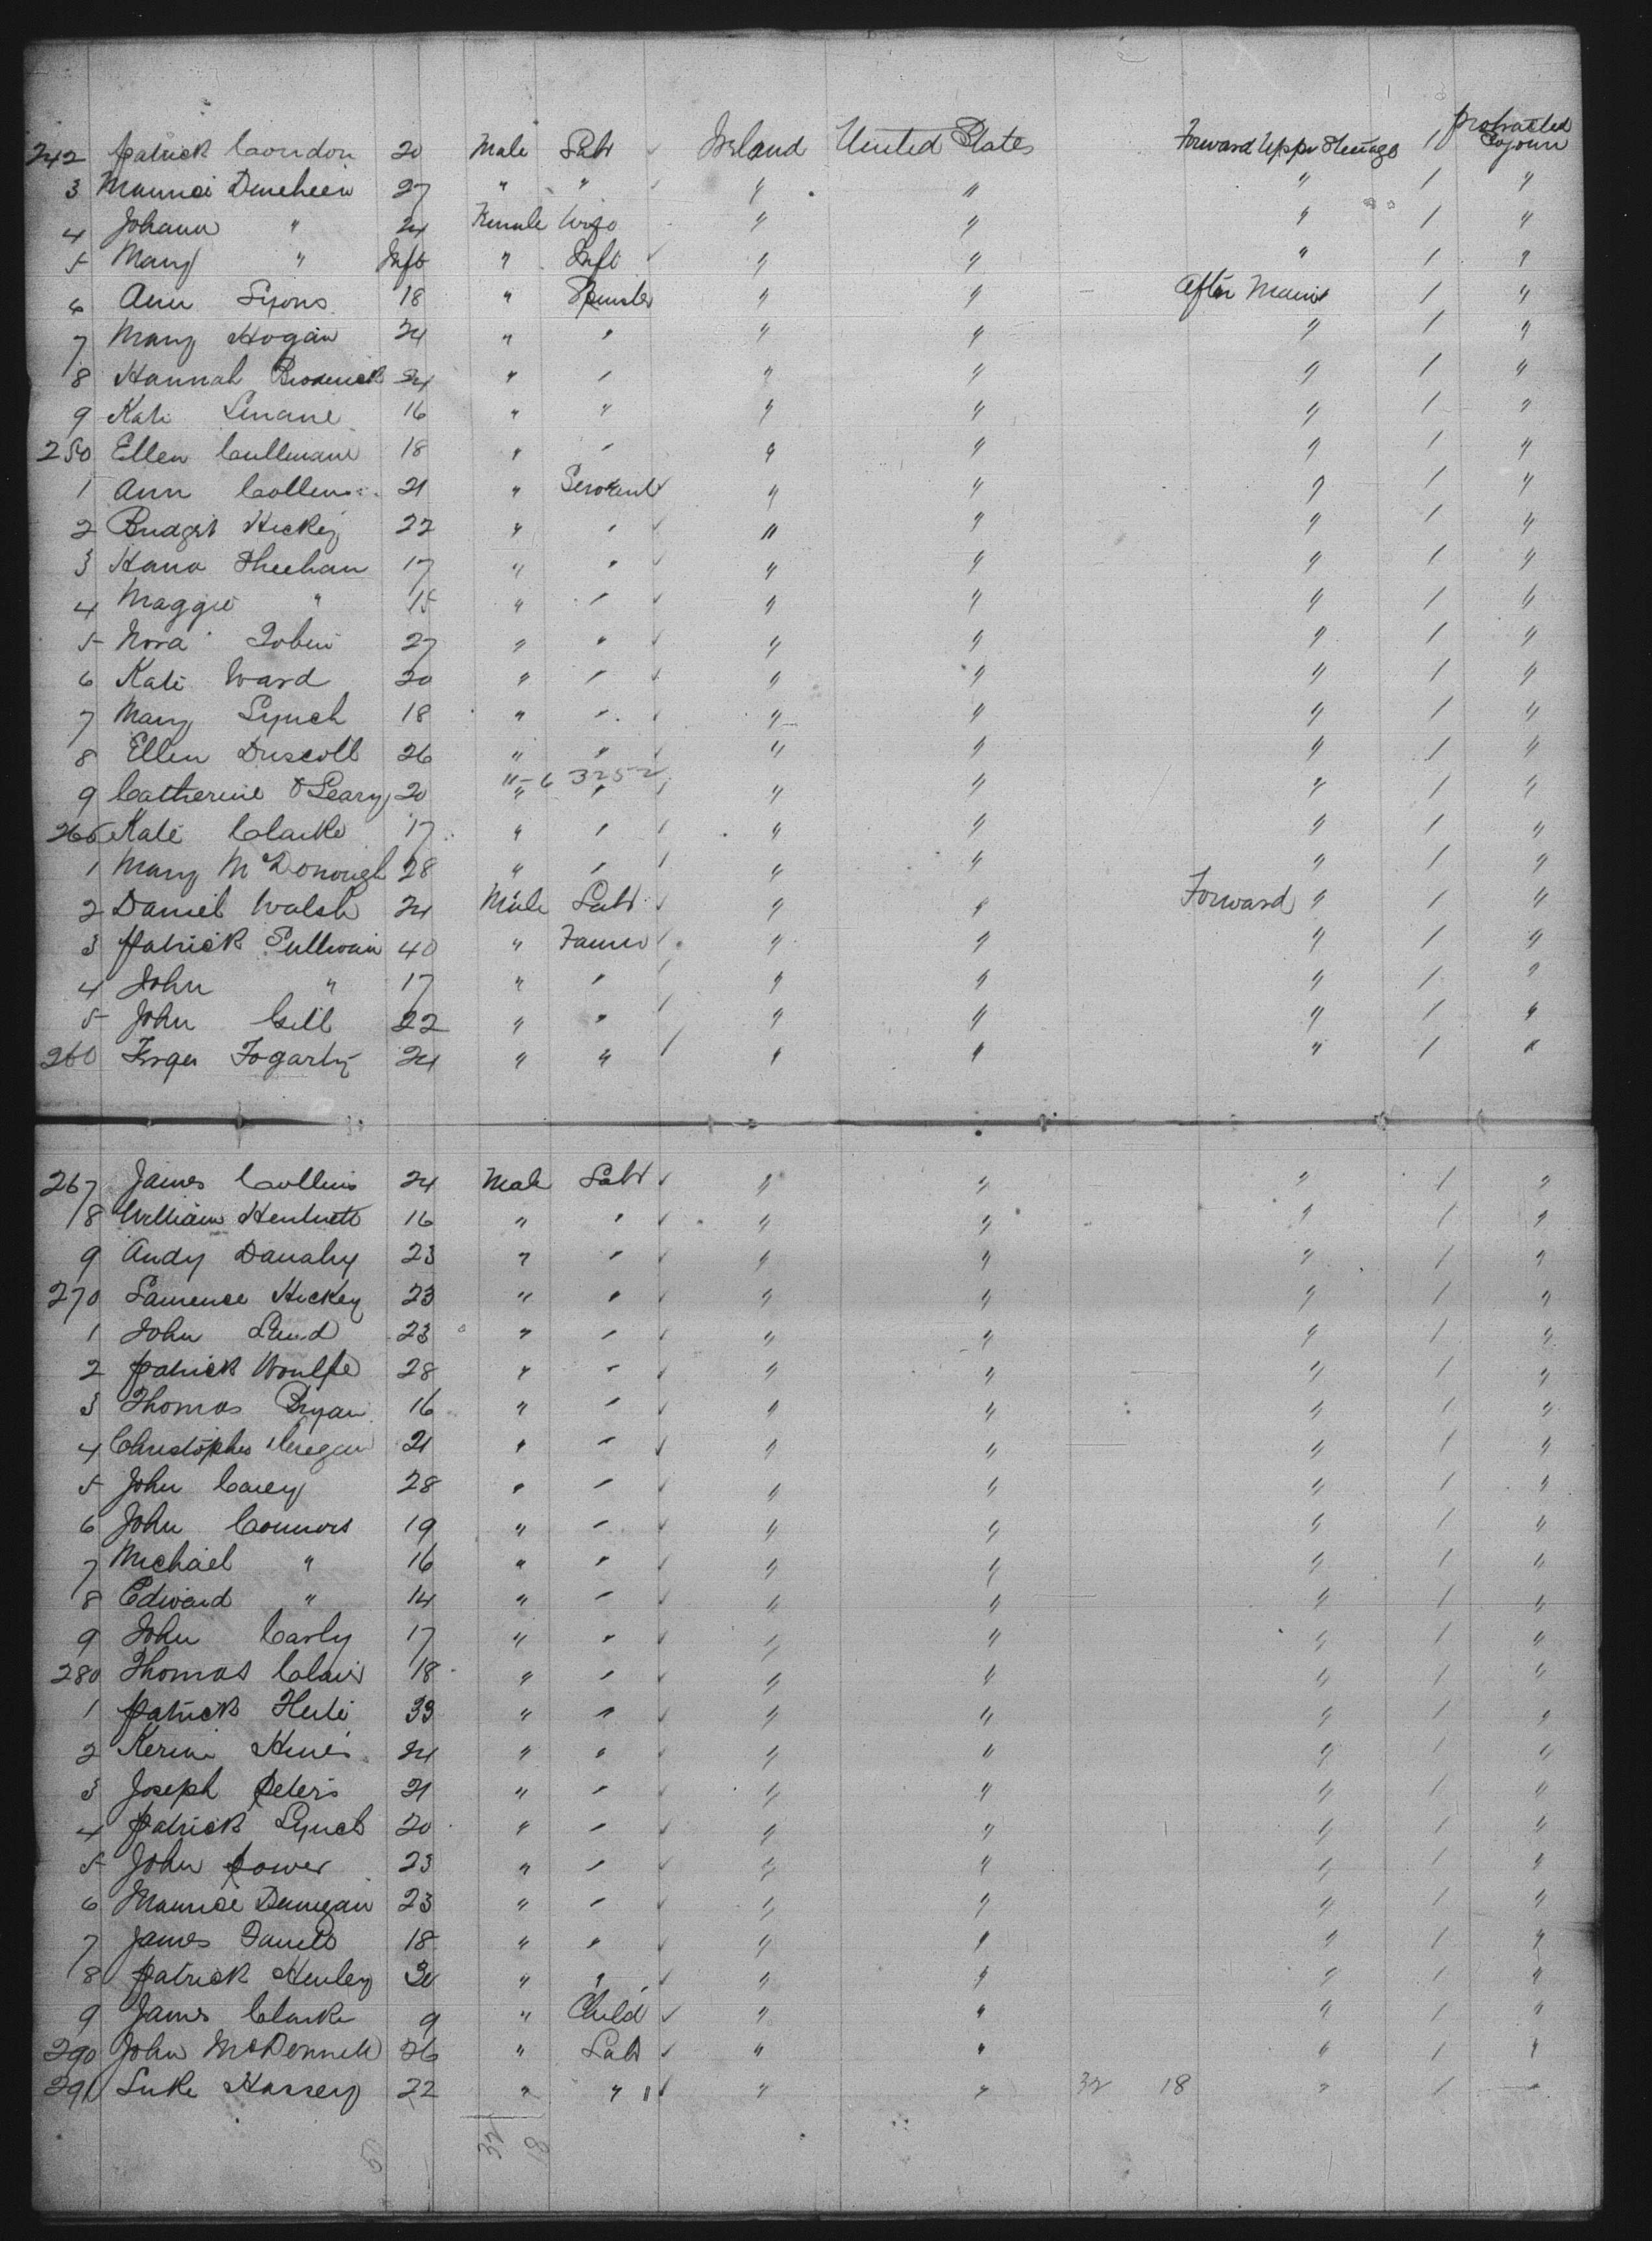 242 Patrick Condon 20 Male Labr Ireland United States Forward Upper Steerage 1 Protracted Sojourn
3 Maurice 27 " " " " " 1 "
4 Johana " 24 Female Wife " " " 1 "
5 Mary " Inft " Inft " " " 1 "
6 Ann Lyons 18 " Spinster " " After Main 1 "
7 Mary Hogan 24 " " " " " 1 "
8 Hannah Broderick 24 " " " " " 1 "
9 Kate Linane 16 " " " " " 1 "
250 Ellen Cullinane 18 " " " " " 1 "
1 Ann Collins 21 " Servant " " " 1 "
2 Bridget Hickey 22 " " " " " 1 "
3 Hana Sheehan 17 " " " " " 1 "
4 Maggie " 15 " " " " " 1 "
5 Nora Tobin 27 " " " " " 1 "
6 Kate Ward 20 " " " " " 1 "
7 Mary Lynch 18 " " " " " 1 "
8 Ellen Driscoll 26 " " " " " 1 "
11-6 3252
9 Catherine O'Leary 20 " " " " " 1 "
260 Kate Clarke 17 " " " " " 1 "
1 Mary McDonough 28 " " " " " 1 "
2 Daniel Walsh 24 Male Labr " " Forward " 1 "
3 Patrick Sullivan 40 " Farmer " " " 1 "
4 John " 17 " " " " " 1 "
5 John Gill 22 " " " " " 1 "
260 Fogarty 24 " " " " " 1 "
267 James Collins 24 Male Labr " " " 1 "
8 William 16 " " " " " 1 "
9 Andy Danahy 23 " " " " " 1 "
270 Laurence Hickey 23 " " " " " 1 "
1 John 23 " " " " " 1 "
2 Patrick Woulfe 28 " " " " " 1 "
3 Thomas Bryan 16 " " " " " 1 "
4 Christopher Cregan 21 " " " " " 1 "
5 John Carey 28 " " " " " 1 "
6 John Connors 19 " " " " " 1 "
7 Michael " 16 " " " " " 1 "
8 Edward " 14 " " " " " 1 "
9 John Carly 17 " " " " " 1 "
280 Thomas Clair 18 " " " " " 1 "
1 Patrick 33 " " " " " 1 "
2 Hines 24 " " " " " 1 "
3 Joseph Peters 21 " " " " " 1 "
4 Patrick Lynch 20 " " " " " 1 "
5 John Power 23 " " " " " 1 "
6 Maurice Dunegan 23 " " " " " 1 "
7 James 18 " " " " " 1 "
8 Patrick Henley 30 " " " " " 1 "
9 James Clarke 9 " Child " " " 1 "
290 John McDonnell 26 " Labr " " " 1 "
291 Luke Hassey 22 " " " " 32 18 " 1 "
50 32 18